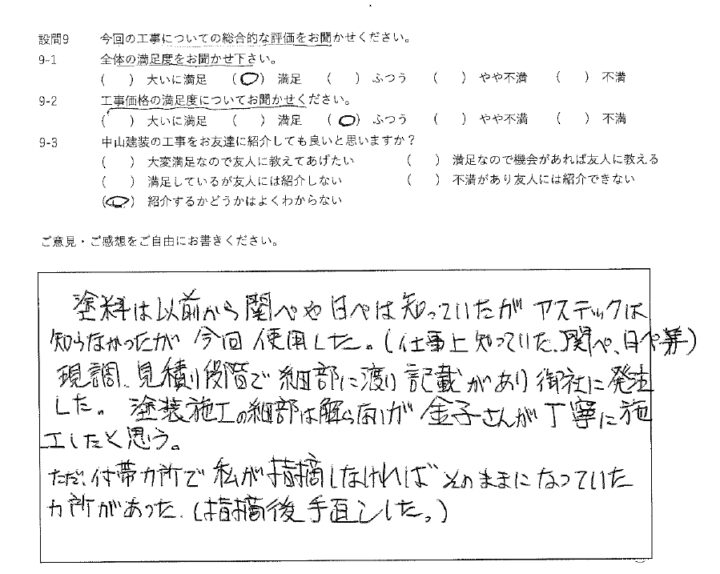 設問9 今回の工事についての総合的な評価をお聞かせください。
9-1 全体の満足度をお聞かせ下さい。
( ) 大いに満足 (○) 満足 ( ) ふつう ( ) やや不満 ( ) 不満
9-2 工事価格の満足度についてお聞かせください。
( ) 大いに満足 ( ) 満足 (○) ふつう ( ) やや不満 ( ) 不満
9-3 中山建装の工事をお友達に紹介しても良いと思いますか?
( ) 大変満足なので友人に教えてあげたい ( ) 満足なので機会があれば友人に教える
( ) 満足しているが友人には紹介しない ( ) 不満があり友人には紹介できない
(○) 紹介するかどうかはよくわからない
ご意見・ご感想をご自由にお書きください。
塗料は以前から関ペや日ペは知っていたがアステックは
知らなかったが今回使用した。(仕事上知っていた、関ペ、日ペ等)
現調、見積り段階で細部に渡り記載があり御社に発注
した。塗装施工の細部は解らないが金子さんが丁寧に施
工したと思う。
ただ、付帯カ所で私が指摘しなければそのままになっていた
カ所があった。(指摘後手直しした。)